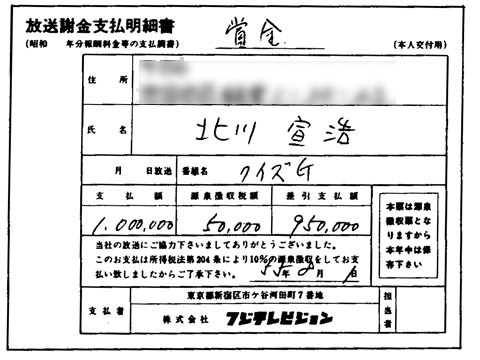 放送謝金支払明細書
賞金
(昭和　　年分報酬料金等の支払調書)
(本人交付用)
住所
氏名　北川宣浩
月　日放送　番組名　クイズG
支払額　源泉徴収税額　差引支払額
1,000,000　50,000　950,000
本票は源泉
徴収票とな
りますから
本年中は保
存下さい
当社の放送にご協力下さいましてありがとうございました。
このお支払は所得税法第204条により10%の源泉徴収をしてお支
払い致しましたからご了承下さい。
55年8月　日
支払者
東京都新宿区市ケ谷河田町7番地
株式会社　フジテレビジョン
担当者